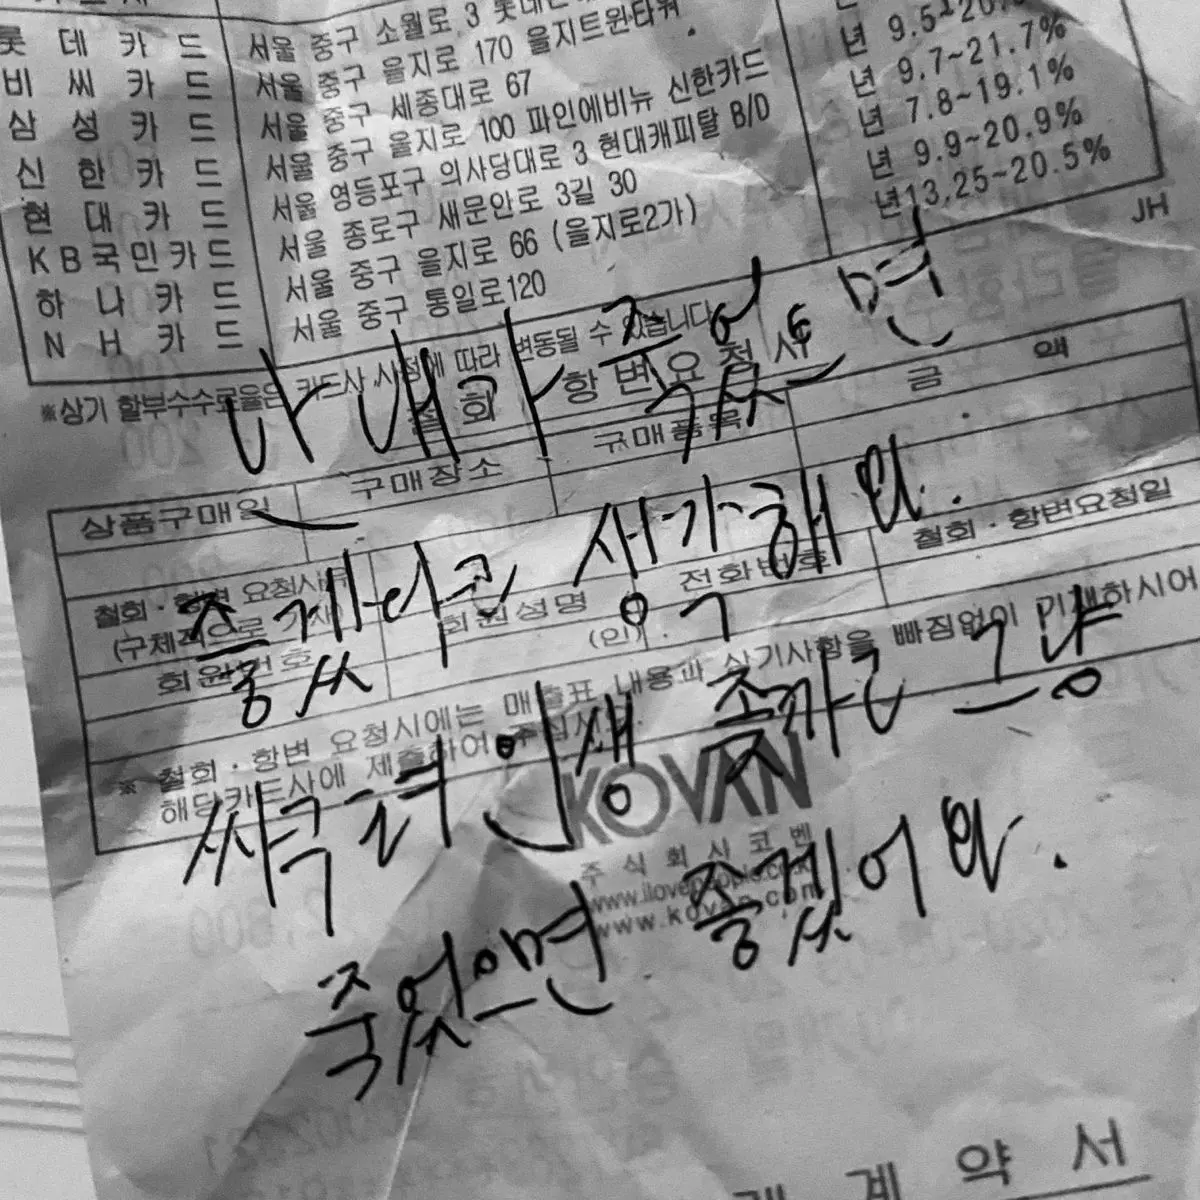 롯데카드 서울 중구 소월로 3
비씨카드 서울 중구 을지로 170 을지트윈타워 년 9.5~20.
삼성카드 서울 중구 세종대로 67 년 9.7~21.7%
신한카드 서울 중구 을지로 100 파인에비뉴 신한카드 년 7.8~19.1%
현대카드 서울 영등포구 의사당대로 3 현대캐피탈 B/D 년 9.9~20.9%
KB국민카드 서울 종로구 새문안로 3길 30 년13.25~20.5%
하나카드 서울 중구 을지로 66 (을지로2가)
NH카드 서울 중구 통일로120
JH
※상기 할부수수료율은 카드사 사정에 따라 변동될 수 있습니다
철회 항변요청서
상품구매일 구매장소 구매품목 금 액
철회·항변 요청사유
(구체적으로 기재)
회원번호 회원성명 (인) 전화번호 철회·항변요청일
※ 철회·항변 요청시에는 매출표 내용과 상기사항을 빠짐없이 기재하시어
해당카드사에 제출하여 주십시오.
나 내가 죽었으면
좋겠다고 생각해 와.
씨극려 인생 좆까고 그냥
죽었으면 좋겠어 와.
KOVAN
주식회사코벤
www.kovan.com
계약서